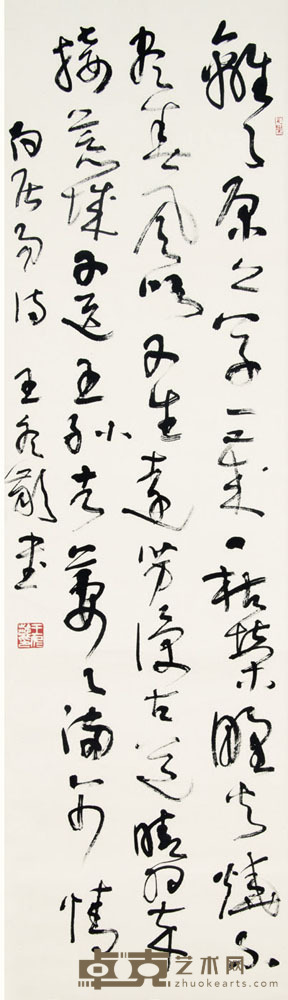 離〻原上草一歲一枯榮野火燒不
盡春風吹又生遠芳侵古道晴翠
接荒城又送王孫去萋〻滿別情
白居易詩 王冬齡書
卓克艺术网
zhuokearts.com